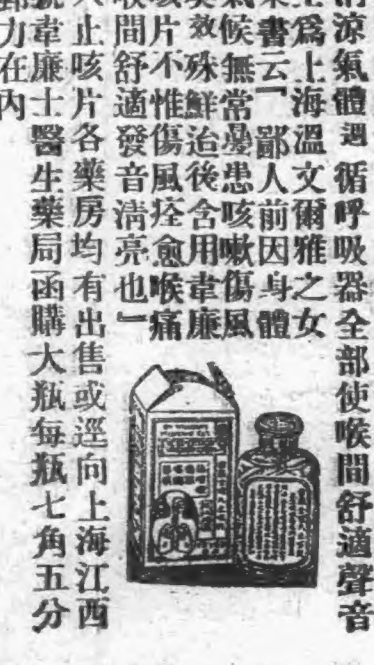 涼氣體週循呼吸器全部使喉間舒適聲音
爲上海溫文爾雅之女
書云「鄙人前因身體
氣候無常屢患咳嗽傷風
效殊鮮迨後含用韋廉
咳片不惟傷風痊愈喉痛
喉間舒適發音清亮也」
止咳片各藥房均有出售或逕向上海江西
號韋廉士醫生藥局函購大瓶每瓶七角五分
郵力在內